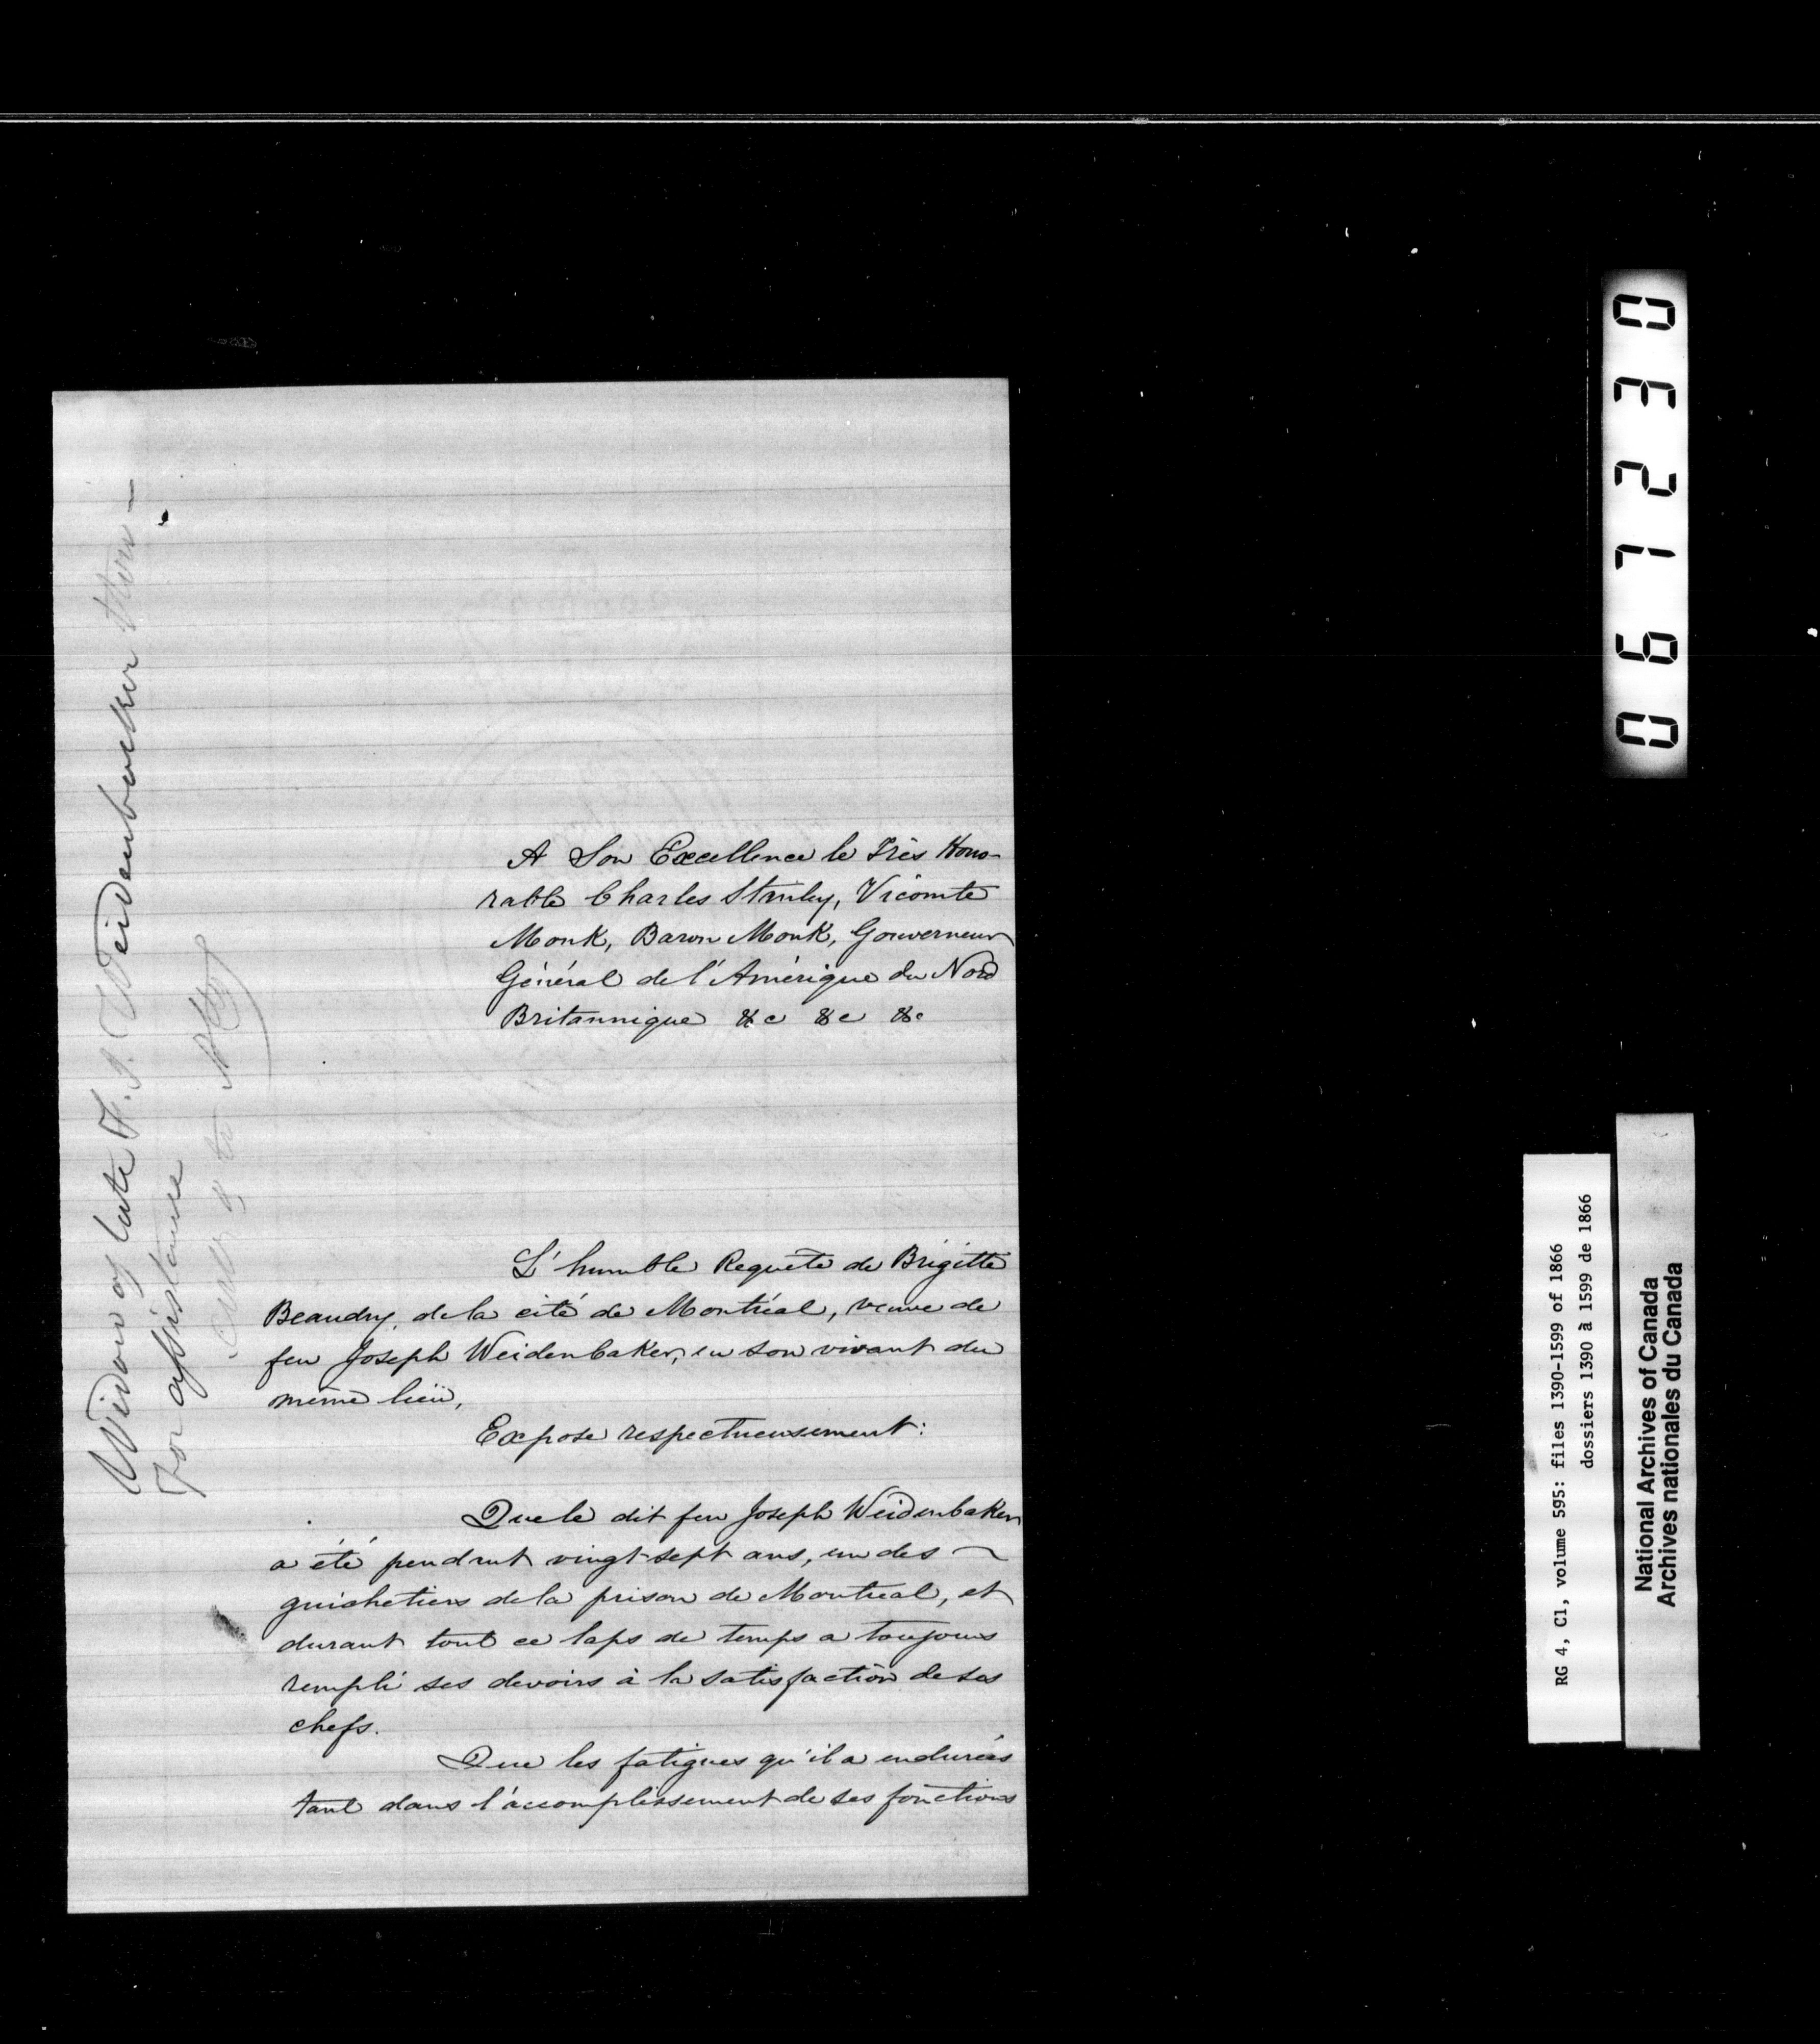 A Son Excellence le Très Hono-
rable Charles Stanley, Vicomte
Monk, Baron Monk, Gouverneur
Général de l'Amérique du Nord
Britannique &c &c &c
L'humble Requête de Brigitte
Beaudry, de la cité de Montréal, veuve de
feu Joseph Weidenbaker, en son vivant du
même lieu,
Expose respectueusement:
Que le dit feu Joseph Weidenbaker
a été pendant vingt-sept ans, un des
guichetiers de la prison de Montreal, et
durant tout ce laps de temps a toujours
rempli ses devoirs à la satisfaction de ses
chefs.
Que les fatigues qu'il a endurées
tant dans l'accomplissement de ses fonctions
Widow of late F. J. Weidenbacker
For assistance
061230
RG 4, C1, volume 595: files 1390-1599 of 1866
dossiers 1390 à 1599 de 1866
National Archives of Canada
Archives nationales du Canada